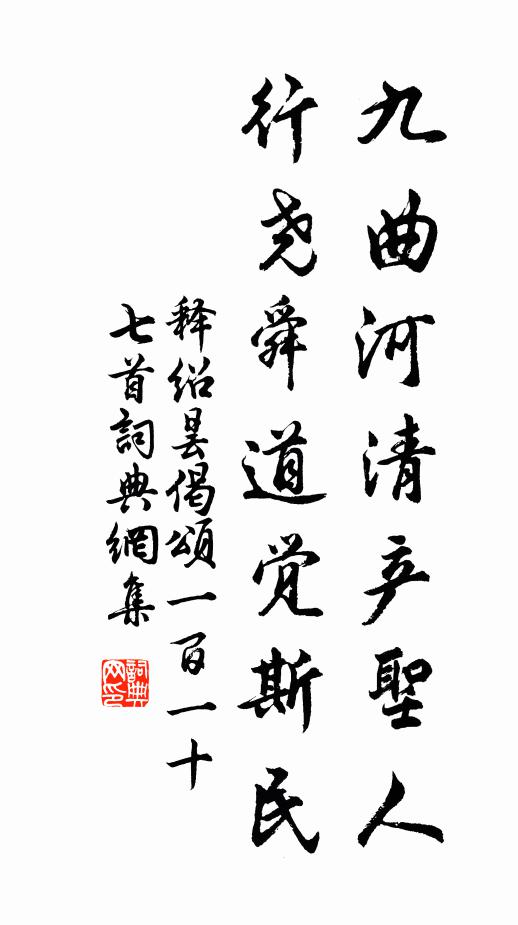 九曲河清产聖人
行尧舜道觉斯民
释绍昙偈頌一百一十
七首詞典網集
詞典网印